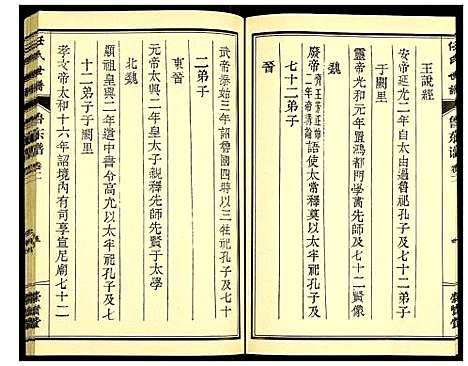 王說經
安帝延光二年過魯祀孔子及七十二弟子
于闕里
靈帝光和元年置鴻都門學畫先師及七十二賢像
魏
廢帝齊王芳正始二年帝講論語使太常釋奠以太牢祀孔子及
七十二弟子
晉
武帝泰始三年詔魯國四時以三牲祀孔子及七十
二弟子
東晉
元帝太興二年皇太子親釋先師先賢于太學
北魏
顯祖皇興二年遣中書令高允以太牢祀孔子及七
十二弟子于闕里
孝文帝太和十六年詔境內有司享宣尼廟七十二
任氏世譜
魯東譜